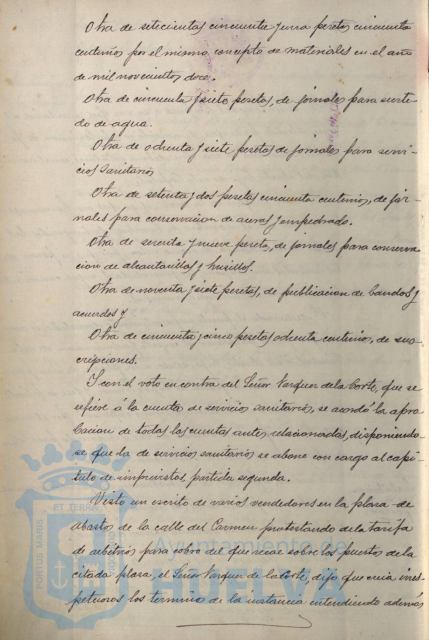 Otra de setecientas cincuenta y una pesetas cincuenta
centimos por el mismo concepto de materiales en el año
de mil novecientos doce.
Otra de cincuenta y siete pesetas, de jornales para surti-
do de agua.
Otra de ochenta y siete pesetas de jornales para servi-
cios sanitarios
Otra de setenta y dos pesetas cincuenta centimos, de jor-
nales para conservacion de aceras y empedrado.
Otra de sesenta y nueve pesetas, de jornales para conserva-
cion de alcantarillas y husillos.
Otra de noventa y siete pesetas, de publicacion de bandos y
acuerdos y
Otra de cincuenta y cinco pesetas ochenta centimos, de sus-
cripciones.
Y con el voto en contra del Señor Vazquez de la Corte, que se
refiere á la cuenta de servicios sanitarios, se acordó la apro-
bacion de todas las cuentas antes relacionadas, disponiendo-
se que la de servicios sanitarios se abone con cargo al capi-
tulo de imprevistos partida segunda.
Visto un escrito de varios vendedores en la plaza de
abastos de la calle del Carmen protestando de la tarifa
de arbitrios para cobro del que recae sobre los puestos de la
citada plaza, el Señor Vazquez de la Corte, dijo que creia irres-
petuosos los terminos de la instancia entendiendo además
PORTUS MARIS ET TERRAE
Ayuntamiento de
HUELVA